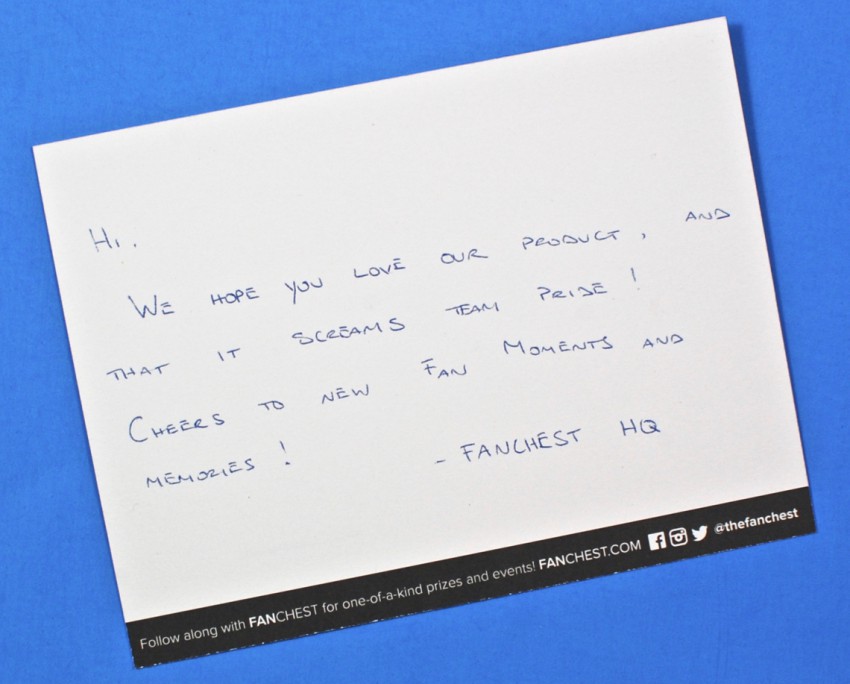 Hi.
WE HOPE YOU LOVE OUR PRODUCT, AND
THAT IT SCREAMS TEAM PRIDE!
CHEERS TO NEW FAN MOMENTS AND
MEMORIES!
- FANCHEST HQ
Follow along with FANCHEST for one-of-a-kind prizes and events! FANCHEST.COM @thefanchest